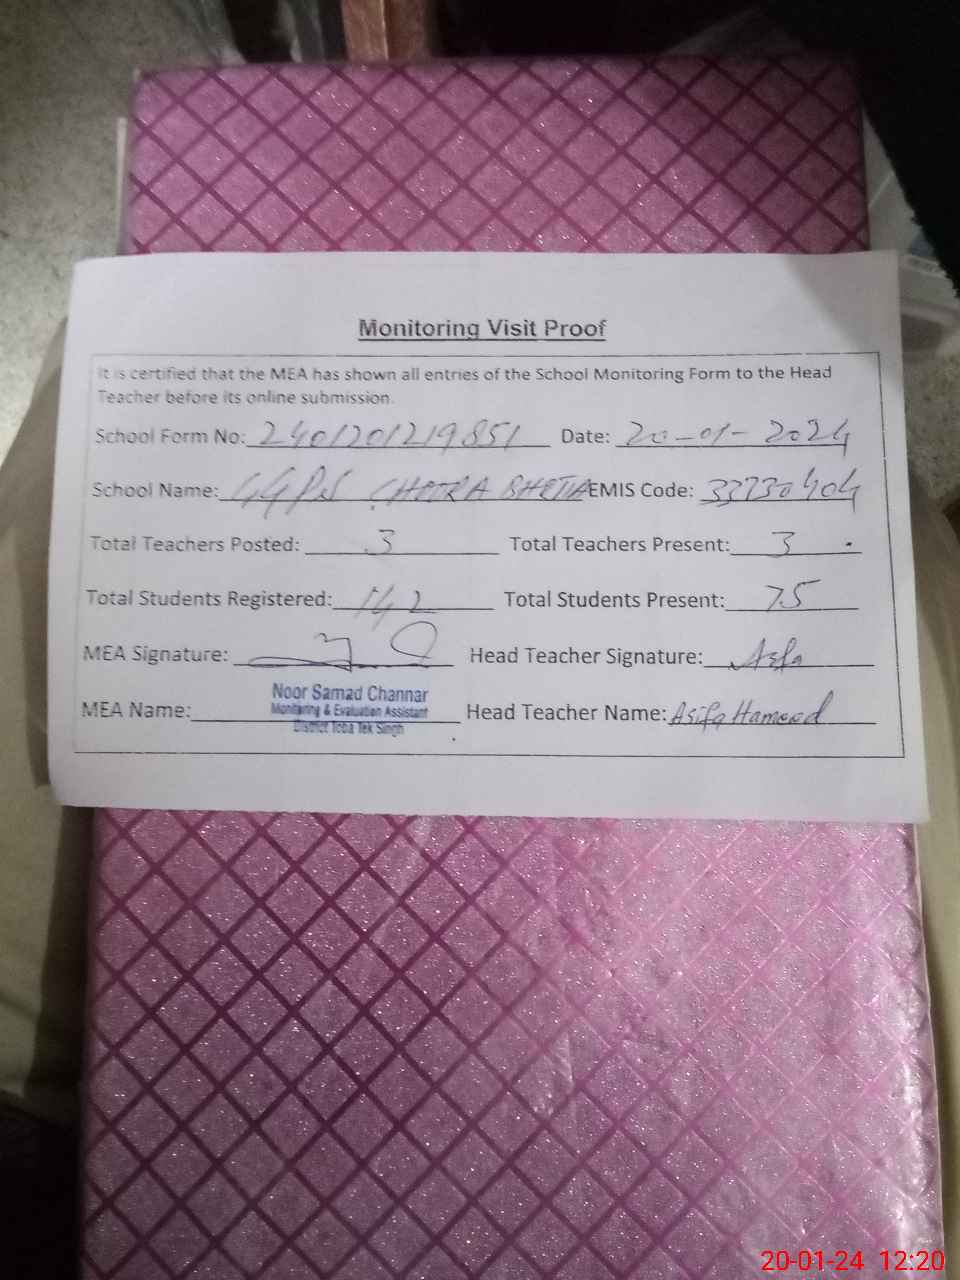 Monitoring Visit Proof
It is certified that the MEA has shown all entries of the School Monitoring Form to the Head
Teacher before its online submission.
School Form No: 2401201219851 Date: 20-01-2024
School Name: GGPS CHOTRA BHETIA EMIS Code: 33730404
Total Teachers Posted: 3 Total Teachers Present: 3
Total Students Registered: 142 Total Students Present: 75
MEA Signature: Head Teacher Signature: Asifa
Noor Samad Channar
Monitoring & Evaluation Assistant
MEA Name: Head Teacher Name: Asifa Hameed
District Toba Tek Singh
20-01-24 12:20